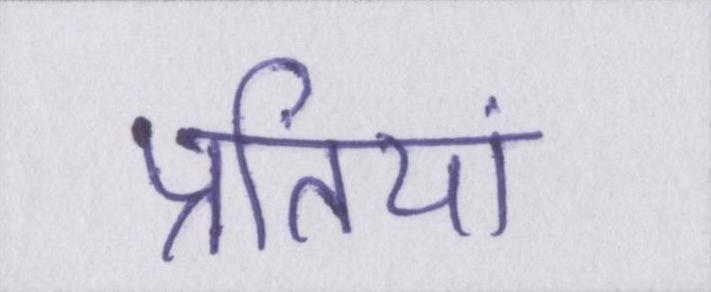 प्रतिंयां